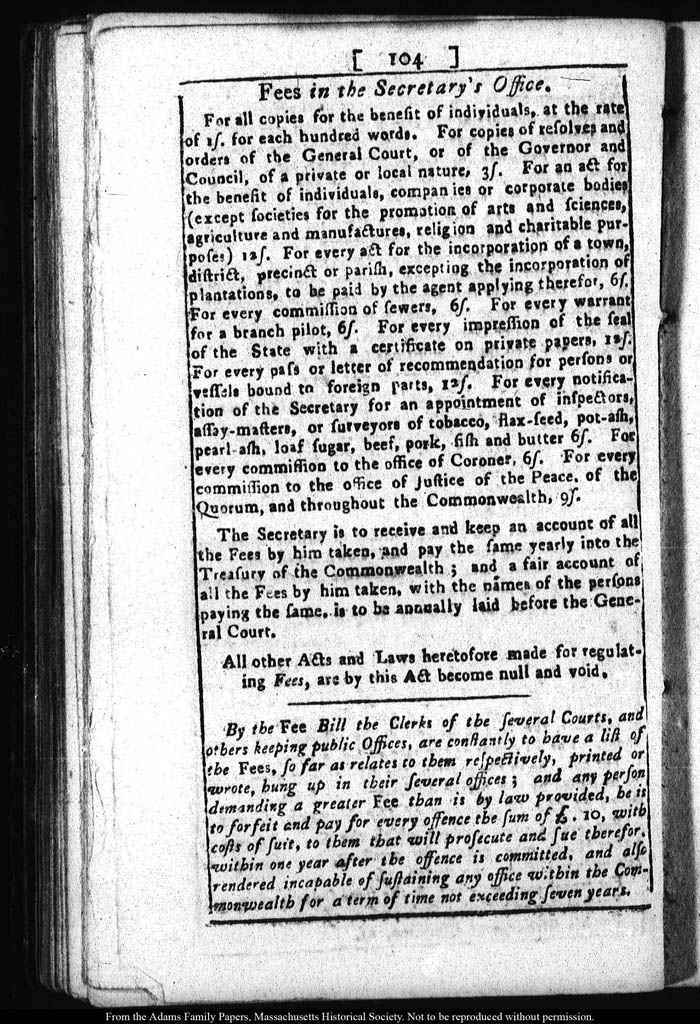 [ 104 ]
Fees in the Secretary's Office.
For all copies for the benefit of individuals, at the rate
of 1ſ. for each hundred words. For copies of reſolves and
orders of the General Court, or of the Governor and
Council, of a private or local nature, 3ſ. For an act for
the benefit of individuals, companies or corporate bodies
(except ſocieties for the promotion of arts and ſciences,
agriculture and manufactures, religion and charitable pur-
poſes) 12ſ. For every act for the incorporation of a town,
diſtrict, precinct or pariſh, excepting the incorporation of
plantations, to be paid by the agent applying therefor, 6ſ.
For every commiſſion of ſewers, 6ſ. For every warrant
for a branch pilot, 6ſ. For every impreſſion of the ſeal
of the State with a certificate on private papers, 12ſ.
For every paſs or letter of recommendation for perſons or
veſſels bound to foreign parts, 12ſ. For every notifica-
tion of the Secretary for an appointment of inſpectors,
aſſay-maſters, or ſurveyors of tobacco, flax-ſeed, pot-aſh,
pearl-aſh, loaf ſugar, beef, pork, fiſh and butter 6ſ. For
every commiſſion to the office of Coroner, 6ſ. For every
commiſſion to the office of Juſtice of the Peace, of the
Quorum, and throughout the Commonwealth, 9ſ.
The Secretary is to receive and keep an account of all
the Fees by him taken, and pay the ſame yearly into the
Treaſury of the Commonwealth ; and a fair account of
all the Fees by him taken, with the names of the perſons
paying the ſame, is to be annually laid before the Gene-
ral Court.
All other Acts and Laws heretofore made for regulat-
ing Fees, are by this Act become null and void.
By the Fee Bill the Clerks of the ſeveral Courts, and
others keeping public Offices, are conſtantly to have a liſt of
the Fees, ſo far as relates to them reſpectively, printed or
wrote, hung up in their ſeveral offices ; and any perſon
demanding a greater Fee than is by law provided, he is
to forfeit and pay for every offence the ſum of £. 10, with
coſts of ſuit, to them that will proſecute and ſue therefor,
within one year after the offence is committed, and alſo
rendered incapable of ſuſtaining any office within the Com-
monwealth for a term of time not exceeding ſeven years.
From the Adams Family Papers, Massachusetts Historical Society. Not to be reproduced without permission.